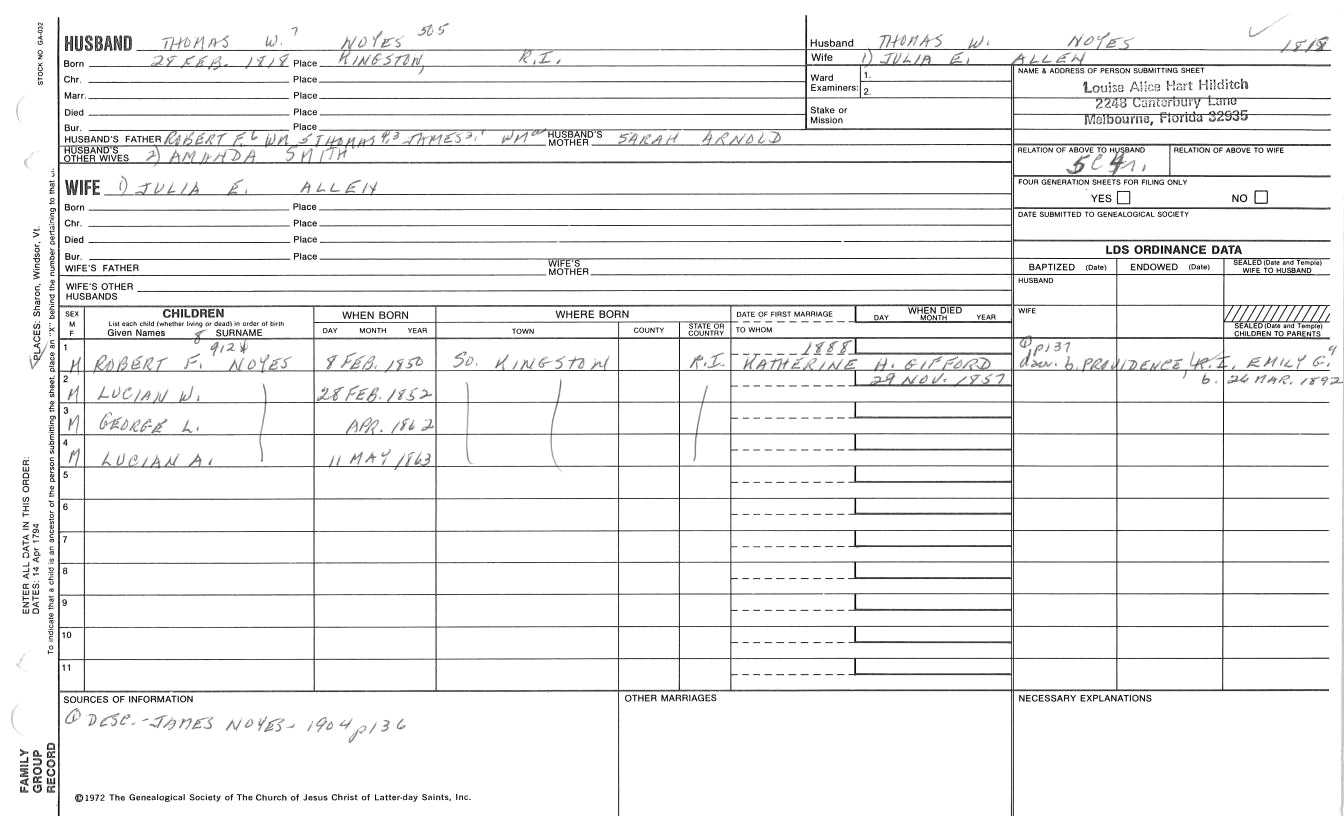 STOCK NO GA-032
HUSBAND THOMAS W.7 NOYES 505
Born 28 FEB. 1818 Place KINGSTON, R.I.
Chr. Place
Marr. Place
Died Place
Bur. Place
HUSBAND'S FATHER ROBERT F.6 WM 5 THOMAS 4,3 JAMES 2,1 WM HUSBAND'S MOTHER SARAH ARNOLD
HUSBAND'S OTHER WIVES 2) AMANDA SMITH
WIFE 1) JULIA E. ALLEN
Born Place
Chr. Place
Died Place
Bur. Place
WIFE'S FATHER WIFE'S MOTHER
WIFE'S OTHER HUSBANDS
Husband THOMAS W. NOYES 1818
Wife 1) JULIA E. ALLEN
Ward Examiners: 1. 2.
Stake or Mission
NAME & ADDRESS OF PERSON SUBMITTING SHEET
Louise Alice Hart Hilditch
2248 Canterbury Lane
Melbourne, Florida 32935
RELATION OF ABOVE TO HUSBAND RELATION OF ABOVE TO WIFE
FOUR GENERATION SHEETS FOR FILING ONLY
YES NO
DATE SUBMITTED TO GENEALOGICAL SOCIETY
LDS ORDINANCE DATA
BAPTIZED (Date) ENDOWED (Date) SEALED (Date and Temple) WIFE TO HUSBAND
HUSBAND
WIFE
SEALED (Date and Temple) CHILDREN TO PARENTS
SEX M F
CHILDREN
List each child (whether living or dead) in order of birth
Given Names SURNAME
WHEN BORN
DAY MONTH YEAR
WHERE BORN
TOWN COUNTY STATE OR COUNTRY
DATE OF FIRST MARRIAGE
TO WHOM
WHEN DIED
DAY MONTH YEAR
8
912
1 1888 ① p137
M ROBERT F. NOYES 8 FEB. 1850 SO. KINGSTON R.I. KATHERINE H. GIFFORD dau. b. PROVIDENCE, R.I. EMILY G.9
2 29 NOV. 1857 b. 26 MAR. 1892
M LUCIAN W. 28 FEB. 1852
3
M GEORGE L. APR. 1862
4
M LUCIAN A. 11 MAY 1863
5
6
7
8
9
10
11
SOURCES OF INFORMATION OTHER MARRIAGES NECESSARY EXPLANATIONS
① DESC.-JAMES NOYES- 1904 p136
©1972 The Genealogical Society of The Church of Jesus Christ of Latter-day Saints, Inc.
FAMILY GROUP RECORD
ENTER ALL DATA IN THIS ORDER:
DATES: 14 Apr 1794
PLACES: Sharon, Windsor, Vt.
To indicate that a child is an ancestor of the person submitting the sheet, place an "X" behind the number pertaining to that